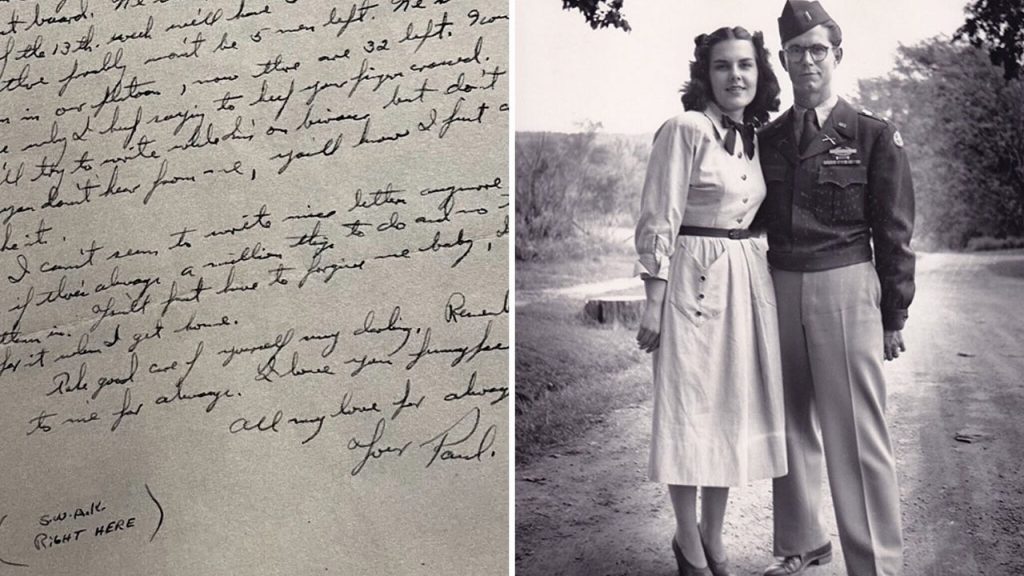 t board.
of the 13th. week we'll have 5
there finally won't be 5 men left. He s
n in our platoon, now there are 32 left. I
only I keep saying to keep your fingers crossed.
'll try to write while on bivouac but don't
you don't hear from me, you'll know I just
he it.
I can't seem to write nice letters anymore
if there's always a million things to do and no
them in. You'll just have to forgive me baby, I
for it when I get home.
Take good care of yourself my darling. Rememb
to me for always. I love your funny face
All my love for always
Your Paul.
( S.W.A.K.
RIGHT HERE )